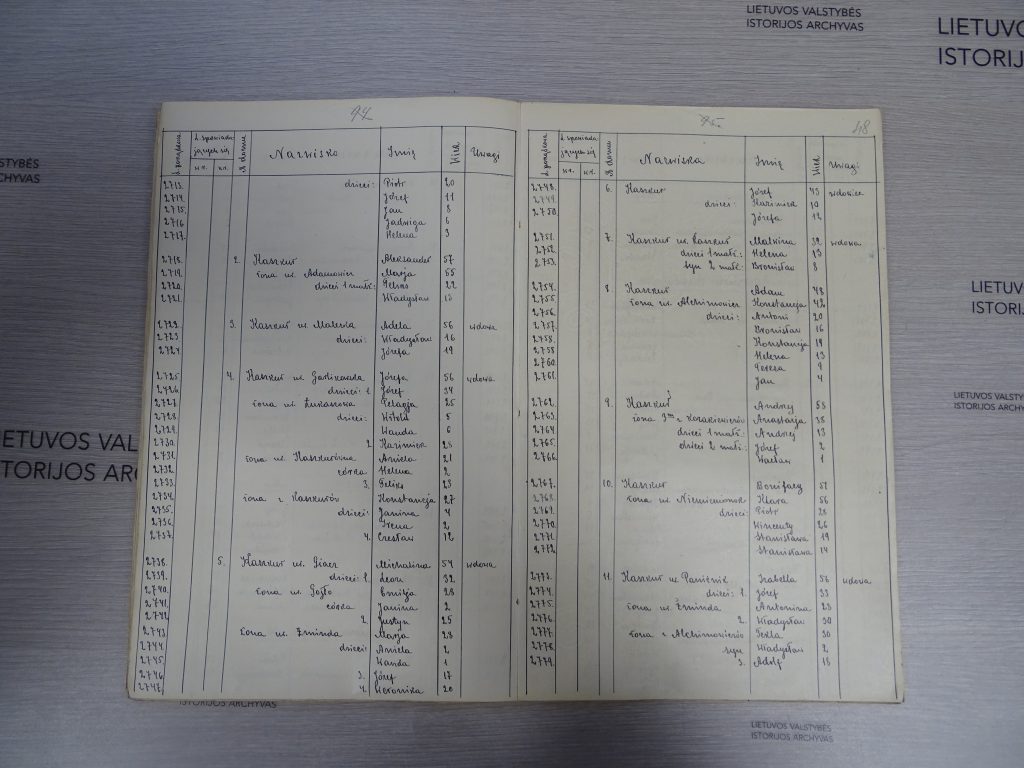 LIETUVOS VALSTYBĖS
ISTORIJOS ARCHYVAS
LIETUVO
ISTORIJ
LSTYBĖS
HYVAS
94
L. porządkowa L. spowiada- № domu Nazwisko Imię Wiek Uwagi
jących się
2713. dzieci: Piotr 20
2714. Józef 11
2715. Jan 8
2716. Jadwiga 6
2717. Helena 3
2718. 2. Kaszkur Aleksander 57
2719. żona ur. Adamowicz Marja 55
2720. dzieci 1 małż: 22
2721. Władysław 15
2722. 3. Kaszkur ur. Adela 56 wdowa
2723 dzieci: Władysław 16
2724 Józefa 19
2725 4. Kaszkur ur. Józefa 56 wdowa
2726. dzieci: 1 Józef 34
2727. żona ur. Łukaszska Pelagja 25
2728. dzieci: Witold 5
2729. Wanda 6
2730. 2 Kazimierz 28
2731. żona ur. Kaszkurówna Aniela 21
2732. córka Helena 2
2733. 3. Feliks 23
2734. żona z Kaszkurów Konstancja 27
2735. dzieci: Janina 4
2736. Irena 2
2737. 4. Czesław 12
2738. 5. Kaszkur ur. Michalina 54 wdowa
2739. dzieci: 1. Leon 32
2740. żona ur. Gojło Emilja 28
2741. córka Janina 2
2742. 2. Justyn 25
2743. żona ur. Żminda Marja 28
2744. dzieci: Aniela 2
2745. Wanda 1
2746. 3. Józef 17
2747. 4. Weronika 20
75. 48
L. porządkowa L. spowiada- № domu Nazwiska Imię Wiek Uwagi
jących się
2748. 6. Kaszkur Józef 45 wdowiec
2749. dzieci: Kazimierz 10
2750. Józefa 12
2751. 7. Kaszkur ur. Kaszkur Malwina 39 wdowa
2752. dzieci 1 małż: Helena 13
2753. syn 2 małż: Bronisław 8
2754. 8. Kaszkur Adam 48
2755 żona ur. Alchimowicz Konstancja 42
2756. dzieci: Antoni 20
2757. Bronisław 16
2758. Konstancja 19
2758 Helena 13
2760. Teresa 9
2761. Jan 4
2762. 9. Kaszkur Andrzej 53
2763. żona 3ᵐ z Korakiewiczów Anastazja 38
2764 dzieci 1 małż: Andrzej 13
2765. dzieci 2 małż: Józef 2
2766. Wacław 1
2767. 10. Kaszkur Bonifacy
2768. żona ur. Klara 56
2769. dzieci: Piotr 28
2770. Wincenty 26
2771. Stanisława 19
2772. Stanisława 14
2773. 11. Kaszkur ur. Izabella 56 wdowa
2774. dzieci: 1. Józef 33
2775. żona ur. Żminda Antonina 23
2776. 2. Władysław 30
2777. żona z Alchimowiczów Tekla 30
2778. syn Władysław 2
2779. 3. Adolf 18
LIETUVO
ISTORIJ
LIETUVOS VALSTYB
ISTORIJOS ARCHYV
IETUVOS VALS
STORIJOS ARCH
ISTORIJOS ARCHYVAS
LIETUVOS VALSTYBĖS
ISTORIJOS ARCHYVAS